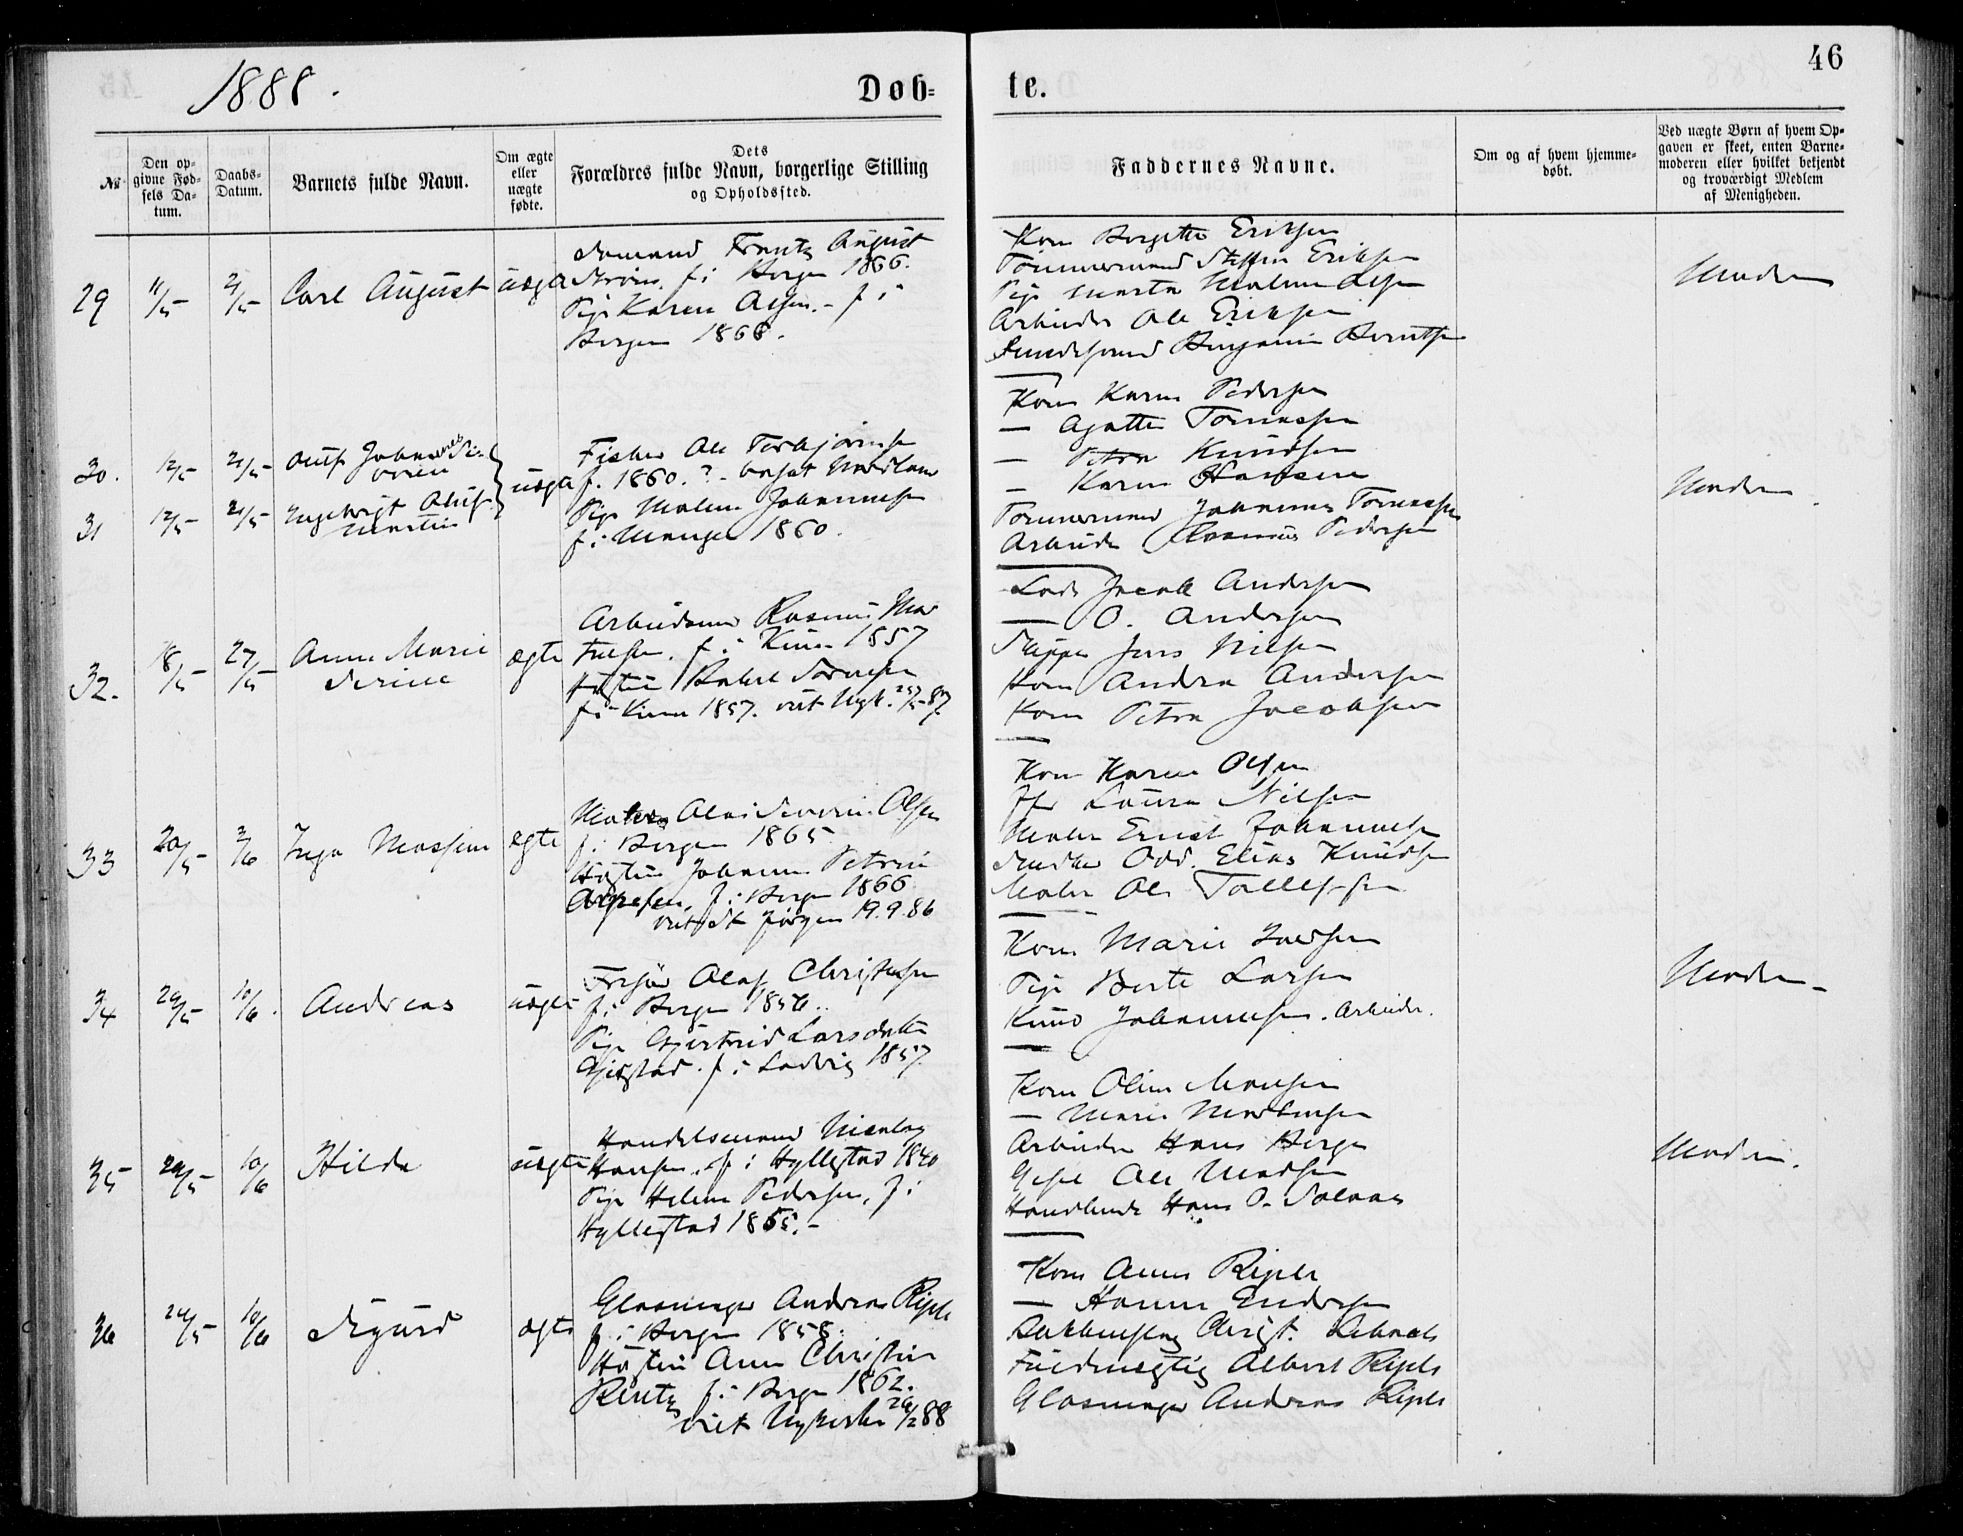 1888.
Døb=
te.
46
№
Den op-
givne Fød-
sels Da-
tum.
Daabs-
Datum.
Barnets fulde Navn.
Om ægte
eller
uægte
fødte.
Dets
Forældres fulde Navn, borgerlige Stilling
og Opholdssted.
Faddernes Navne.
Om og af hvem hjemme-
døbt.
Ved uægte Børn af hvem Op-
gaven er skeet, enten Barne-
moderen eller hvilket bekjendt
og troværdigt Medlem
af Menigheden.
29
11/5
21/5
Carl August
uægte
Sømand Frantz August
Strøm. f i Bergen 1866.
Pige Karen Olsen. - f i
Bergen 1868.
Kone Birgitte Eriksen
Tømmermand Steffen Eriksen
Pige Marta Malene Olsen
Arbeider Ole Eriksen
Benjamin Berntsen
Moderen
30.
12/5
21/5
Oluf Johannes Se-
verin
31
12/5
21/5
Ingebrigt Oluf
Martin
uægte
Fisker Ole Torbjørnsen
f. 1860. ? - bosat Nordland
Pige Malene Johannesen
f i Manger 1860.
Kone Karen Pedersen
— Agathe Tomassen
— Petra Knudsen
— Karen Hansen
Tømmermand Johannes Tomassen
Arbeider Rasmus Pedersen
Moderen
32.
18/5
27/5
Anne Marie
Serine
ægte
Arbeidsmand Rasmus Mar
tinsen. f i Kinn 1857
Hustru Rakel Sørensen
f i Kinn 1857. viet Nyk. 87.
Lods Jacob Andersen
— O. Andersen
Skipper Jens Nilsen
Kone Andrea Andersen
Kone Petra Jacobsen
33
20/5
3/6
Inga Massine
ægte
Olai Severin Olsen
f i Bergen 1865
Hustru Johanne Petrine
f i Bergen 1866
viet St Jørgen 19.9.86
Kone Karen Olsen
Jfr Laura Nilsen
Maler Ernst Johannesen
Snedker Odd. Elias Knudsen
Maler Ole Tollefsen
34
29/5
10/6.
Andreas
uægte
Frisør Olaf Christensen
f i Bergen 1856.
Pige Gjertrud Larsdatter
f i Ladvig 1857
Kone Marie Iversen
Pige Berte Larsen
Knud Johannesen. Arbeider.
Moderen
35
29/5
10/6
Hilda
uægte
Handelsmand Nicolay
Hansen. f i Hyllestad 1840
Pige Helene Pedersen, f i
Hyllestad 1865.-
Kone Oline Monsen
— Marie Mortensen
Arbeider Hans Berge
Ole Madsen
Handlende Hans O. Solaas
Moderen.
36
24/5
10/6
Sigurd
ægte
Andreas Ripels
f i Bergen 1858.
Hustru Anna Christine
Rentz f i Bergen 1862.
viet Nykirken 26/2 88
Kone Anna Ripels
— Hanna Endresen
Christ.
Fuldmægtig Albert Ripels
Andreas Ripels